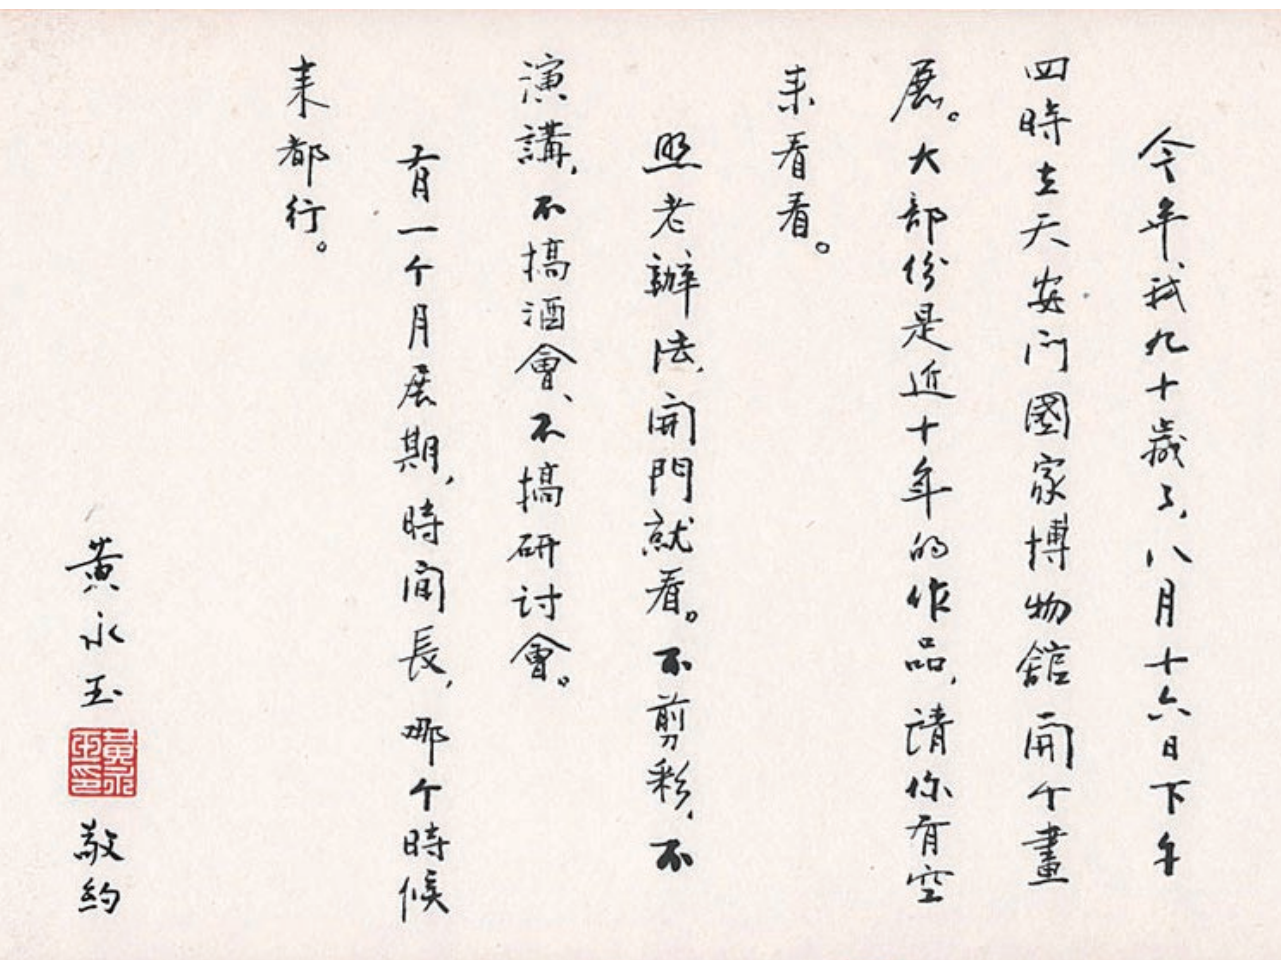 今年我九十歲了，八月十六日下午
四時在天安门國家博物館開个畫
展。大部份是近十年的作品，請你有空
来看看。
照老辦法，開門就看。不剪彩，不
演講，不搞酒會，不搞研讨會。
有一个月展期，時間長，哪个時候
来都行。
黄永玉
黃永玉印
敬約